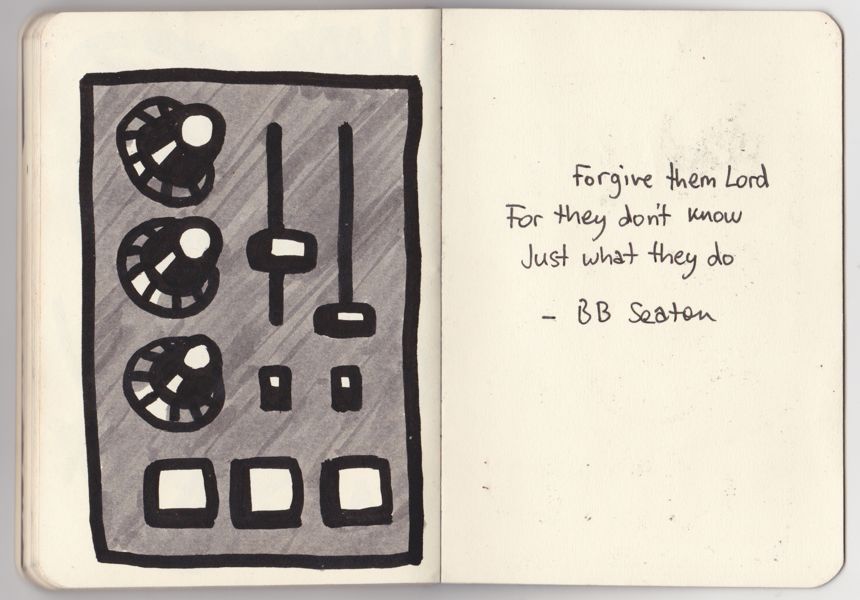 Forgive them Lord
For they don't know
Just what they do
- BB Seaton